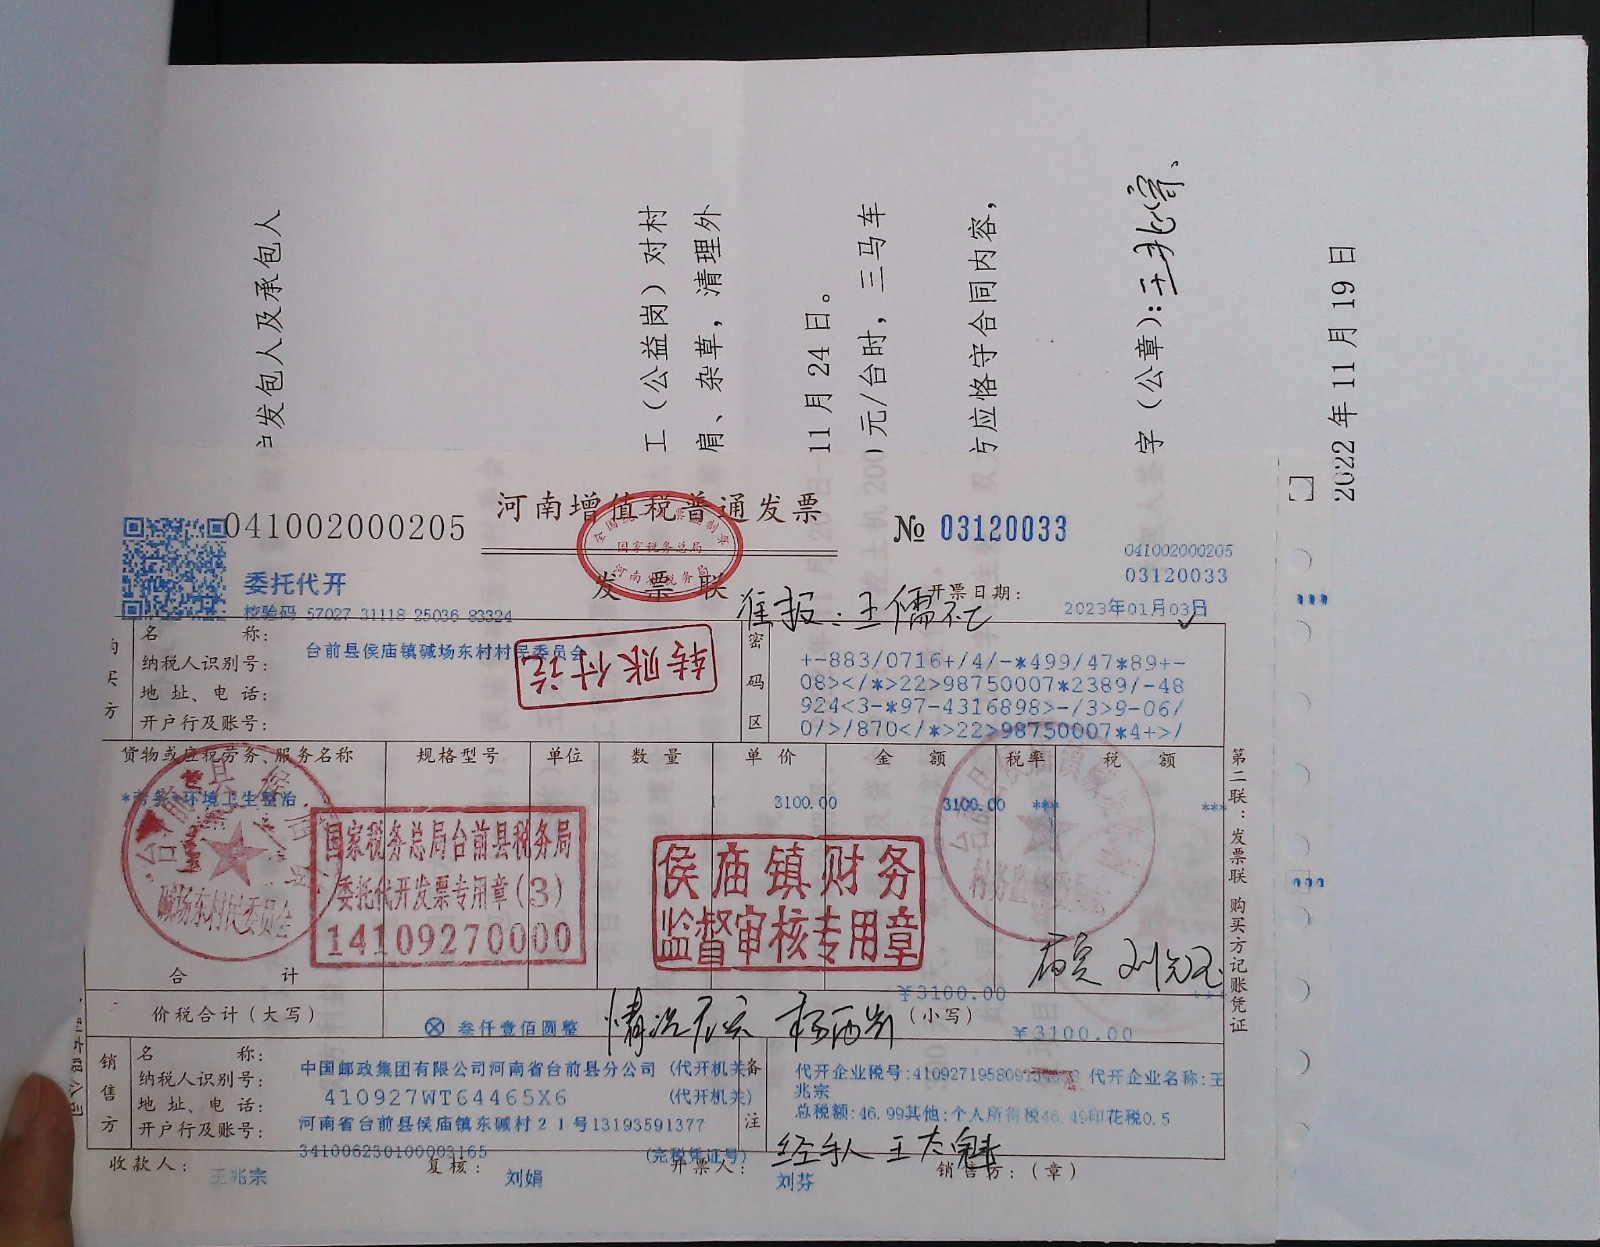 户发包人及承包人
工（公益岗）对村
肩、杂草，清理外
11月24日。
）元/台时，三马车
方应恪守合同内容，
字（公章）：王兆宗、
2022年11月19日
041002000205
河南增值税普通发票
发票联
全国统一发票监制章
国家税务总局
河南省税务局
№ 03120033
041002000205
03120033
委托代开
校验码 57027 31118 25036 83324
准报：王儒
开票日期：
2023年01月03日
购买方
名称：
台前县侯庙镇碱场东村村民委员会
纳税人识别号：
地址、电话：
开户行及账号：
转账付讫
密码区
+-883/0716+/4/-*499/47*89+-
08></*>22>98750007*2389/-48
924<3-*97-4316898>-/3>9-06/
0/>/870</*>22>98750007*4+>/
货物或应税劳务、服务名称 规格型号 单位 数量 单价 金额 税率 税额
*劳务*环境卫生整治 1 3100.00 3100.00 *** ***
碱场东村民委员会
国家税务总局台前县税务局
委托代开发票专用章(3)
14109270000
侯庙镇财务
监督审核专用章
村务监督委员会
合计
¥3100.00 ***
价税合计（大写）
ⓧ 叁仟壹佰圆整
（小写）
¥3100.00
情况属实
销售方
名称：
中国邮政集团有限公司河南省台前县分公司 (代开机关)
纳税人识别号：
410927WT64465X6 (代开机关)
地址、电话：
河南省台前县侯庙镇东碱村21号13193591377
开户行及账号：
341006230100003165 (完税凭证号)
备注
代开企业名称：王
兆宗
总税额：46.99其他：个人所得税46.49印花税0.5
经手人
收款人：
王兆宗
复核：
刘娟
开票人：
刘芬
销售方：（章）
第二联：发票联 购买方记账凭证